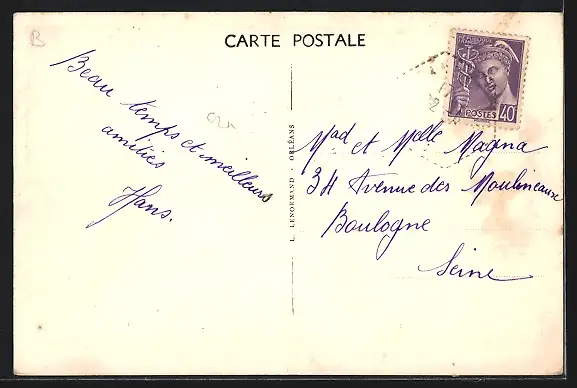 B
CARTE POSTALE
Beau temps et meilleurs
amitiés
Hans.
L. LENORMAND - ORLÉANS
POSTES 40
Mad et Melle Magna
34 Avenue des Moulineaux
Boulogne
Seine